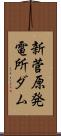 新菅原発
電所ダム